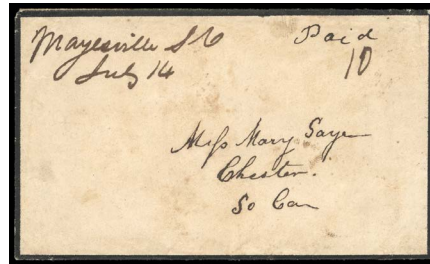 Mayesville S C
July 14
Paid
10
Miss Mary Saye
Chester.
So Car